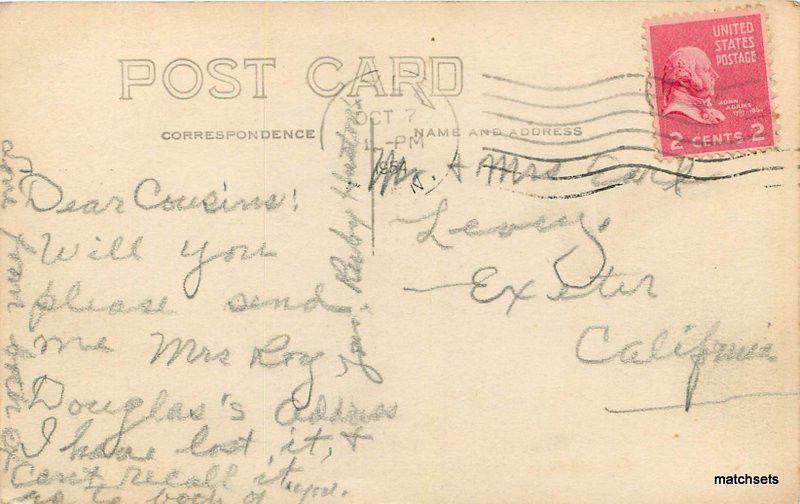 POST CARD
CORRESPONDENCE
NAME AND ADDRESS
OCT 7
1 - PM
1954
UNITED
STATES
POSTAGE
JOHN
ADAMS
2 CENTS 2
Mr. + Mrs Earl
Exeter
California
Dear Cousins:
Will you
please send
me Mrs Roy
Douglas's address
I have lost it, +
can't recall it,
to both of you.
Love from
Ruby
matchsets